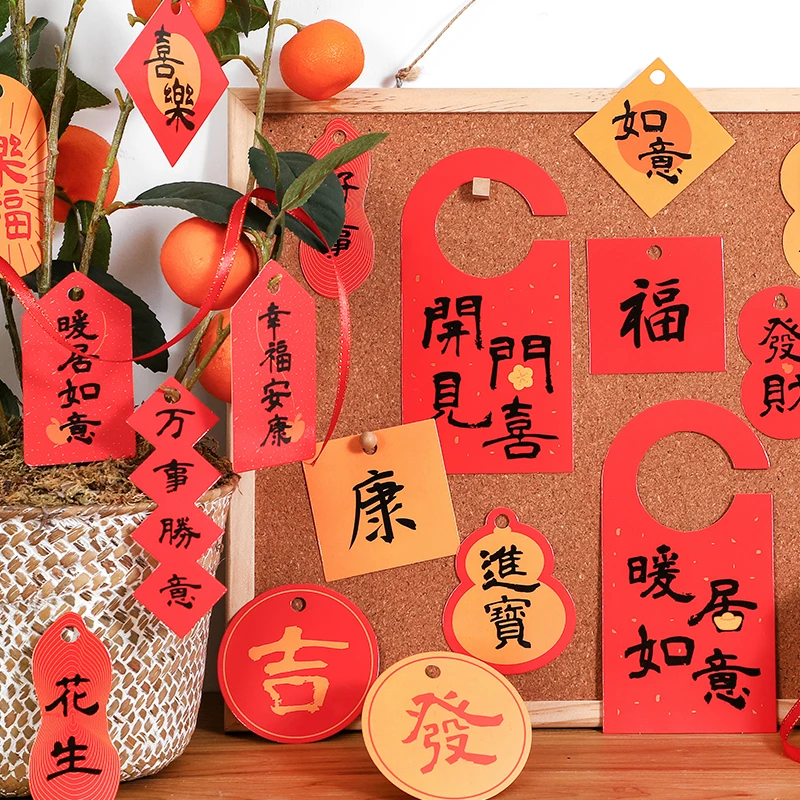 喜樂
如意
樂福
好事
開門
見喜
福
發財
暖居如意
幸福安康
万事勝意
康
進寶
暖居
如意
吉
發
花生